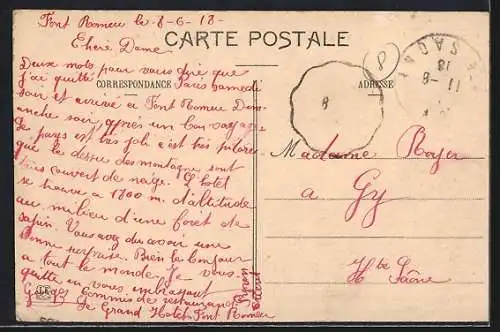 Font Romeu le 8-6-18-
Chère Dame
CARTE POSTALE
CORRESPONDANCE
ADRESSE
Deux mots pour vous dire que
j'ai quitté Paris Samedi
soir et arrivé a Font Romeu Dim
anche soir après un bon voyage
le pays est très joli c'est très pitores
que le dessus des montagne sont
tous couvert de neige. L'hotel
se trouve a 1800 m. d'altitude
au milieu d'une forêt de
sapin. Vous avez du avoir une
bonne surprise. Bien le bonjour
a tout le monde. Je vous
quitte en vous embrassant
Georges commis de restaurant
Le Grand Hotel Font Romeu
Pyren
Orient
Madame Royer
a Gy
Hte Saône
8
8
18
11-6